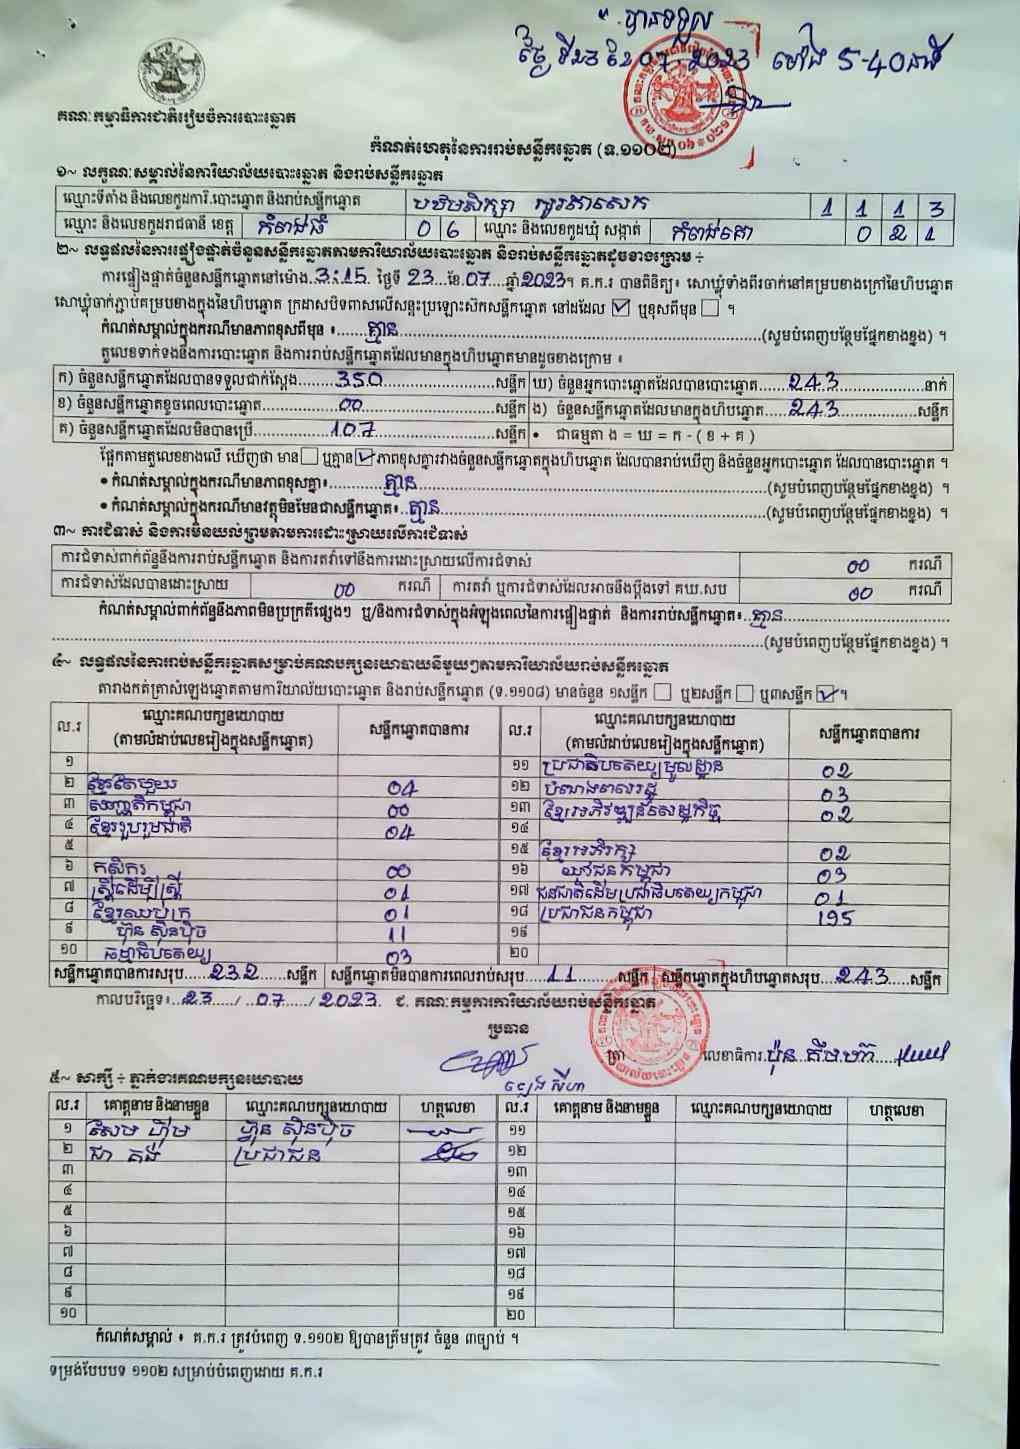 បានទទួល
ថ្ងៃ ទី23 ខែ 07. 2023 ម៉ោង 5-40នាទី
គណៈកម្មាធិការជាតិរៀបចំការបោះឆ្នោត
កំណត់ហេតុនៃការរាប់សន្លឹកឆ្នោត (ទ.១១០២)
១~ លក្ខណៈសម្គាល់នៃការិយាល័យបោះឆ្នោត និងរាប់សន្លឹកឆ្នោត
ឈ្មោះទីតាំង និងលេខកូដការិ.បោះឆ្នោត និងរាប់សន្លឹកឆ្នោត បឋមសិក្សា 1 1 1 3
ឈ្មោះ និងលេខកូដរាជធានី ខេត្ត កំពង់ធំ 0 6 ឈ្មោះ និងលេខកូដឃុំ សង្កាត់ 0 2 1
២~ លទ្ធផលនៃការផ្ទៀងផ្ទាត់ចំនួនសន្លឹកឆ្នោតតាមការិយាល័យបោះឆ្នោត និងរាប់សន្លឹកឆ្នោតដូចខាងក្រោម ÷
ការផ្ទៀងផ្ទាត់ចំនួនសន្លឹកឆ្នោតនៅម៉ោង 3:15 ថ្ងៃទី 23 ខែ 07 ឆ្នាំ 2023។ គ.ក.រ បានពិនិត្យ៖ សោឃ្លុំទាំងពីរចាក់នៅគម្របខាងក្រៅនៃហិបឆ្នោត
សោឃ្លុំចាក់ភ្ជាប់គម្របខាងក្នុងនៃហិបឆ្នោត ក្រដាសបិទពាសលើសន្ទះប្រឡោះស៊កសន្លឹកឆ្នោត នៅដដែល ☑ ឬខុសពីមុន ☐ ។
កំណត់សម្គាល់ក្នុងករណីមានភាពខុសពីមុន ៖ គ្មាន (សូមបំពេញបន្ថែមផ្នែកខាងខ្នង) ។
តួលេខទាក់ទងនឹងការបោះឆ្នោត និងការរាប់សន្លឹកឆ្នោតដែលមានក្នុងហិបឆ្នោតមានដូចខាងក្រោម ៖
ក) ចំនួនសន្លឹកឆ្នោតដែលបានទទួលជាក់ស្តែង 350 សន្លឹក ឃ) ចំនួនអ្នកបោះឆ្នោតដែលបានបោះឆ្នោត 243 នាក់
ខ) ចំនួនសន្លឹកឆ្នោតខូចពេលបោះឆ្នោត 00 សន្លឹក ង) ចំនួនសន្លឹកឆ្នោតដែលមានក្នុងហិបឆ្នោត 243 សន្លឹក
គ) ចំនួនសន្លឹកឆ្នោតដែលមិនបានប្រើ 107 សន្លឹក • ជាធម្មតា ង = ឃ = ក - ( ខ + គ )
ផ្អែកតាមតួលេខខាងលើ ឃើញថា មាន ☐ ឬគ្មាន ☑ ភាពខុសគ្នារវាងចំនួនសន្លឹកឆ្នោតក្នុងហិបឆ្នោត ដែលបានរាប់ឃើញ និងចំនួនអ្នកបោះឆ្នោត ដែលបានបោះឆ្នោត ។
• កំណត់សម្គាល់ក្នុងករណីមានភាពខុសគ្នា៖ គ្មាន (សូមបំពេញបន្ថែមផ្នែកខាងខ្នង) ។
• កំណត់សម្គាល់ក្នុងករណីមានវត្ថុមិនមែនជាសន្លឹកឆ្នោត៖ គ្មាន (សូមបំពេញបន្ថែមផ្នែកខាងខ្នង) ។
៣~ ការជំទាស់ និងការមិនយល់ព្រមតាមការដោះស្រាយលើការជំទាស់
ការជំទាស់ពាក់ព័ន្ធនឹងការរាប់សន្លឹកឆ្នោត និងការតវ៉ាទៅនឹងការដោះស្រាយលើការជំទាស់ 00 ករណី
ការជំទាស់ដែលបានដោះស្រាយ 00 ករណី ការតវ៉ា ឬការជំទាស់ដែលអាចនឹងប្តឹងទៅ គឃ.សប 00 ករណី
កំណត់សម្គាល់ពាក់ព័ន្ធនឹងភាពមិនប្រក្រតីផ្សេងៗ ឬ/និងការជំទាស់ក្នុងអំឡុងពេលនៃការផ្ទៀងផ្ទាត់ និងការរាប់សន្លឹកឆ្នោត៖ គ្មាន
(សូមបំពេញបន្ថែមផ្នែកខាងខ្នង) ។
៤~ លទ្ធផលនៃការរាប់សន្លឹកឆ្នោតសម្រាប់គណបក្សនយោបាយនីមួយៗតាមការិយាល័យរាប់សន្លឹកឆ្នោត
តារាងកត់ត្រាសំឡេងឆ្នោតតាមការិយាល័យបោះឆ្នោត និងរាប់សន្លឹកឆ្នោត (ទ.១១០៨) មានចំនួន ១សន្លឹក ☐ ឬ២សន្លឹក ☐ ឬ៣សន្លឹក ☑ ។
ល.រ ឈ្មោះគណបក្សនយោបាយ (តាមលំដាប់លេខរៀងក្នុងសន្លឹកឆ្នោត) សន្លឹកឆ្នោតបានការ ល.រ ឈ្មោះគណបក្សនយោបាយ (តាមលំដាប់លេខរៀងក្នុងសន្លឹកឆ្នោត) សន្លឹកឆ្នោតបានការ
១ ១១ ប្រជាធិបតេយ្យមូលដ្ឋាន 02
២ ខ្មែរតែមួយ 04 ១២ បំណងពលរដ្ឋ 03
៣ សញ្ជាតិកម្ពុជា 00 ១៣ ខ្មែរអភិវឌ្ឍន៍សេដ្ឋកិច្ច 02
៤ ខ្មែររួបរួមជាតិ 04 ១៤
៥ ១៥ ខ្មែរអភិរក្ស 02
៦ កសិករ 00 ១៦ យុវជនកម្ពុជា 03
៧ ស្ត្រីដើម្បីស្ត្រី 01 ១៧ ជនជាតិដើមប្រជាធិបតេយ្យកម្ពុជា 01
៨ ខ្មែរឈប់ក្រ 01 ១៨ ប្រជាជនកម្ពុជា 195
៩ ហ៊្វុន ស៊ិនប៉ិច 11 ១៩
១០ ធម្មាធិបតេយ្យ 03 ២០
សន្លឹកឆ្នោតបានការសរុប 232 សន្លឹក សន្លឹកឆ្នោតមិនបានការពេលរាប់សរុប 11 សន្លឹក សន្លឹកឆ្នោតក្នុងហិបឆ្នោតសរុប 243 សន្លឹក
កាលបរិច្ឆេទ៖ 23 / 07 / 2023 ជ. គណៈកម្មការការិយាល័យរាប់សន្លឹកឆ្នោត
ប្រធាន
ត្រា លេខាធិការ
សីហា
៥~ សាក្សី ÷ ភ្នាក់ងារគណបក្សនយោបាយ
ល.រ គោត្តនាម និងនាមខ្លួន ឈ្មោះគណបក្សនយោបាយ ហត្ថលេខា ល.រ គោត្តនាម និងនាមខ្លួន ឈ្មោះគណបក្សនយោបាយ ហត្ថលេខា
១ សែម ហ៊ុម ហ៊្វុន ស៊ិនប៉ិច ១១
២ ជា គង់ ប្រជាជន ១២
៣ ១៣
៤ ១៤
៥ ១៥
៦ ១៦
៧ ១៧
៨ ១៨
៩ ១៩
១០ ២០
កំណត់សម្គាល់ ៖ គ.ក.រ ត្រូវបំពេញ ទ.១១០២ ឱ្យបានត្រឹមត្រូវ ចំនួន ៣ច្បាប់ ។
ទម្រង់បែបបទ ១១០២ សម្រាប់បំពេញដោយ គ.ក.រ